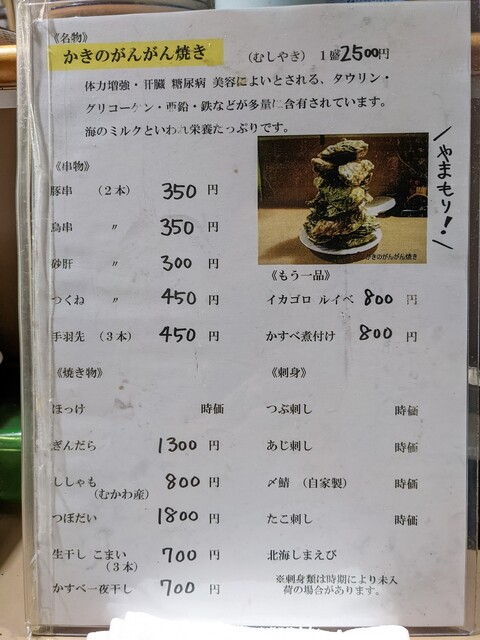 《名物》
かきのがんがん焼き （むしやき） 1盛2500円
体力増強・肝臓 糖尿病 美容によいとされる、タウリン・
グリコーゲン・亜鉛・鉄などが多量に含有されています。
海のミルクといわれ栄養たっぷりです。
やまもり！
かきのがんがん焼き
《串物》
豚串 （2本） 350円
鳥串 〃 350円
砂肝 〃 300円
つくね 〃 450円
手羽先 （3本） 450円
《もう一品》
イカゴロ ルイベ 800円
かすべ煮付け 800円
《焼き物》
ほっけ 時価
ぎんだら 1300円
ししゃも 800円
（むかわ産）
つぼだい 1800円
生干し こまい 700円
（3本）
かすべ一夜干し 700円
《刺身》
つぶ刺し 時価
あじ刺し 時価
〆鯖 （自家製） 時価
たこ刺し 時価
北海しまえび
※刺身類は時期により未入
荷の場合があります。